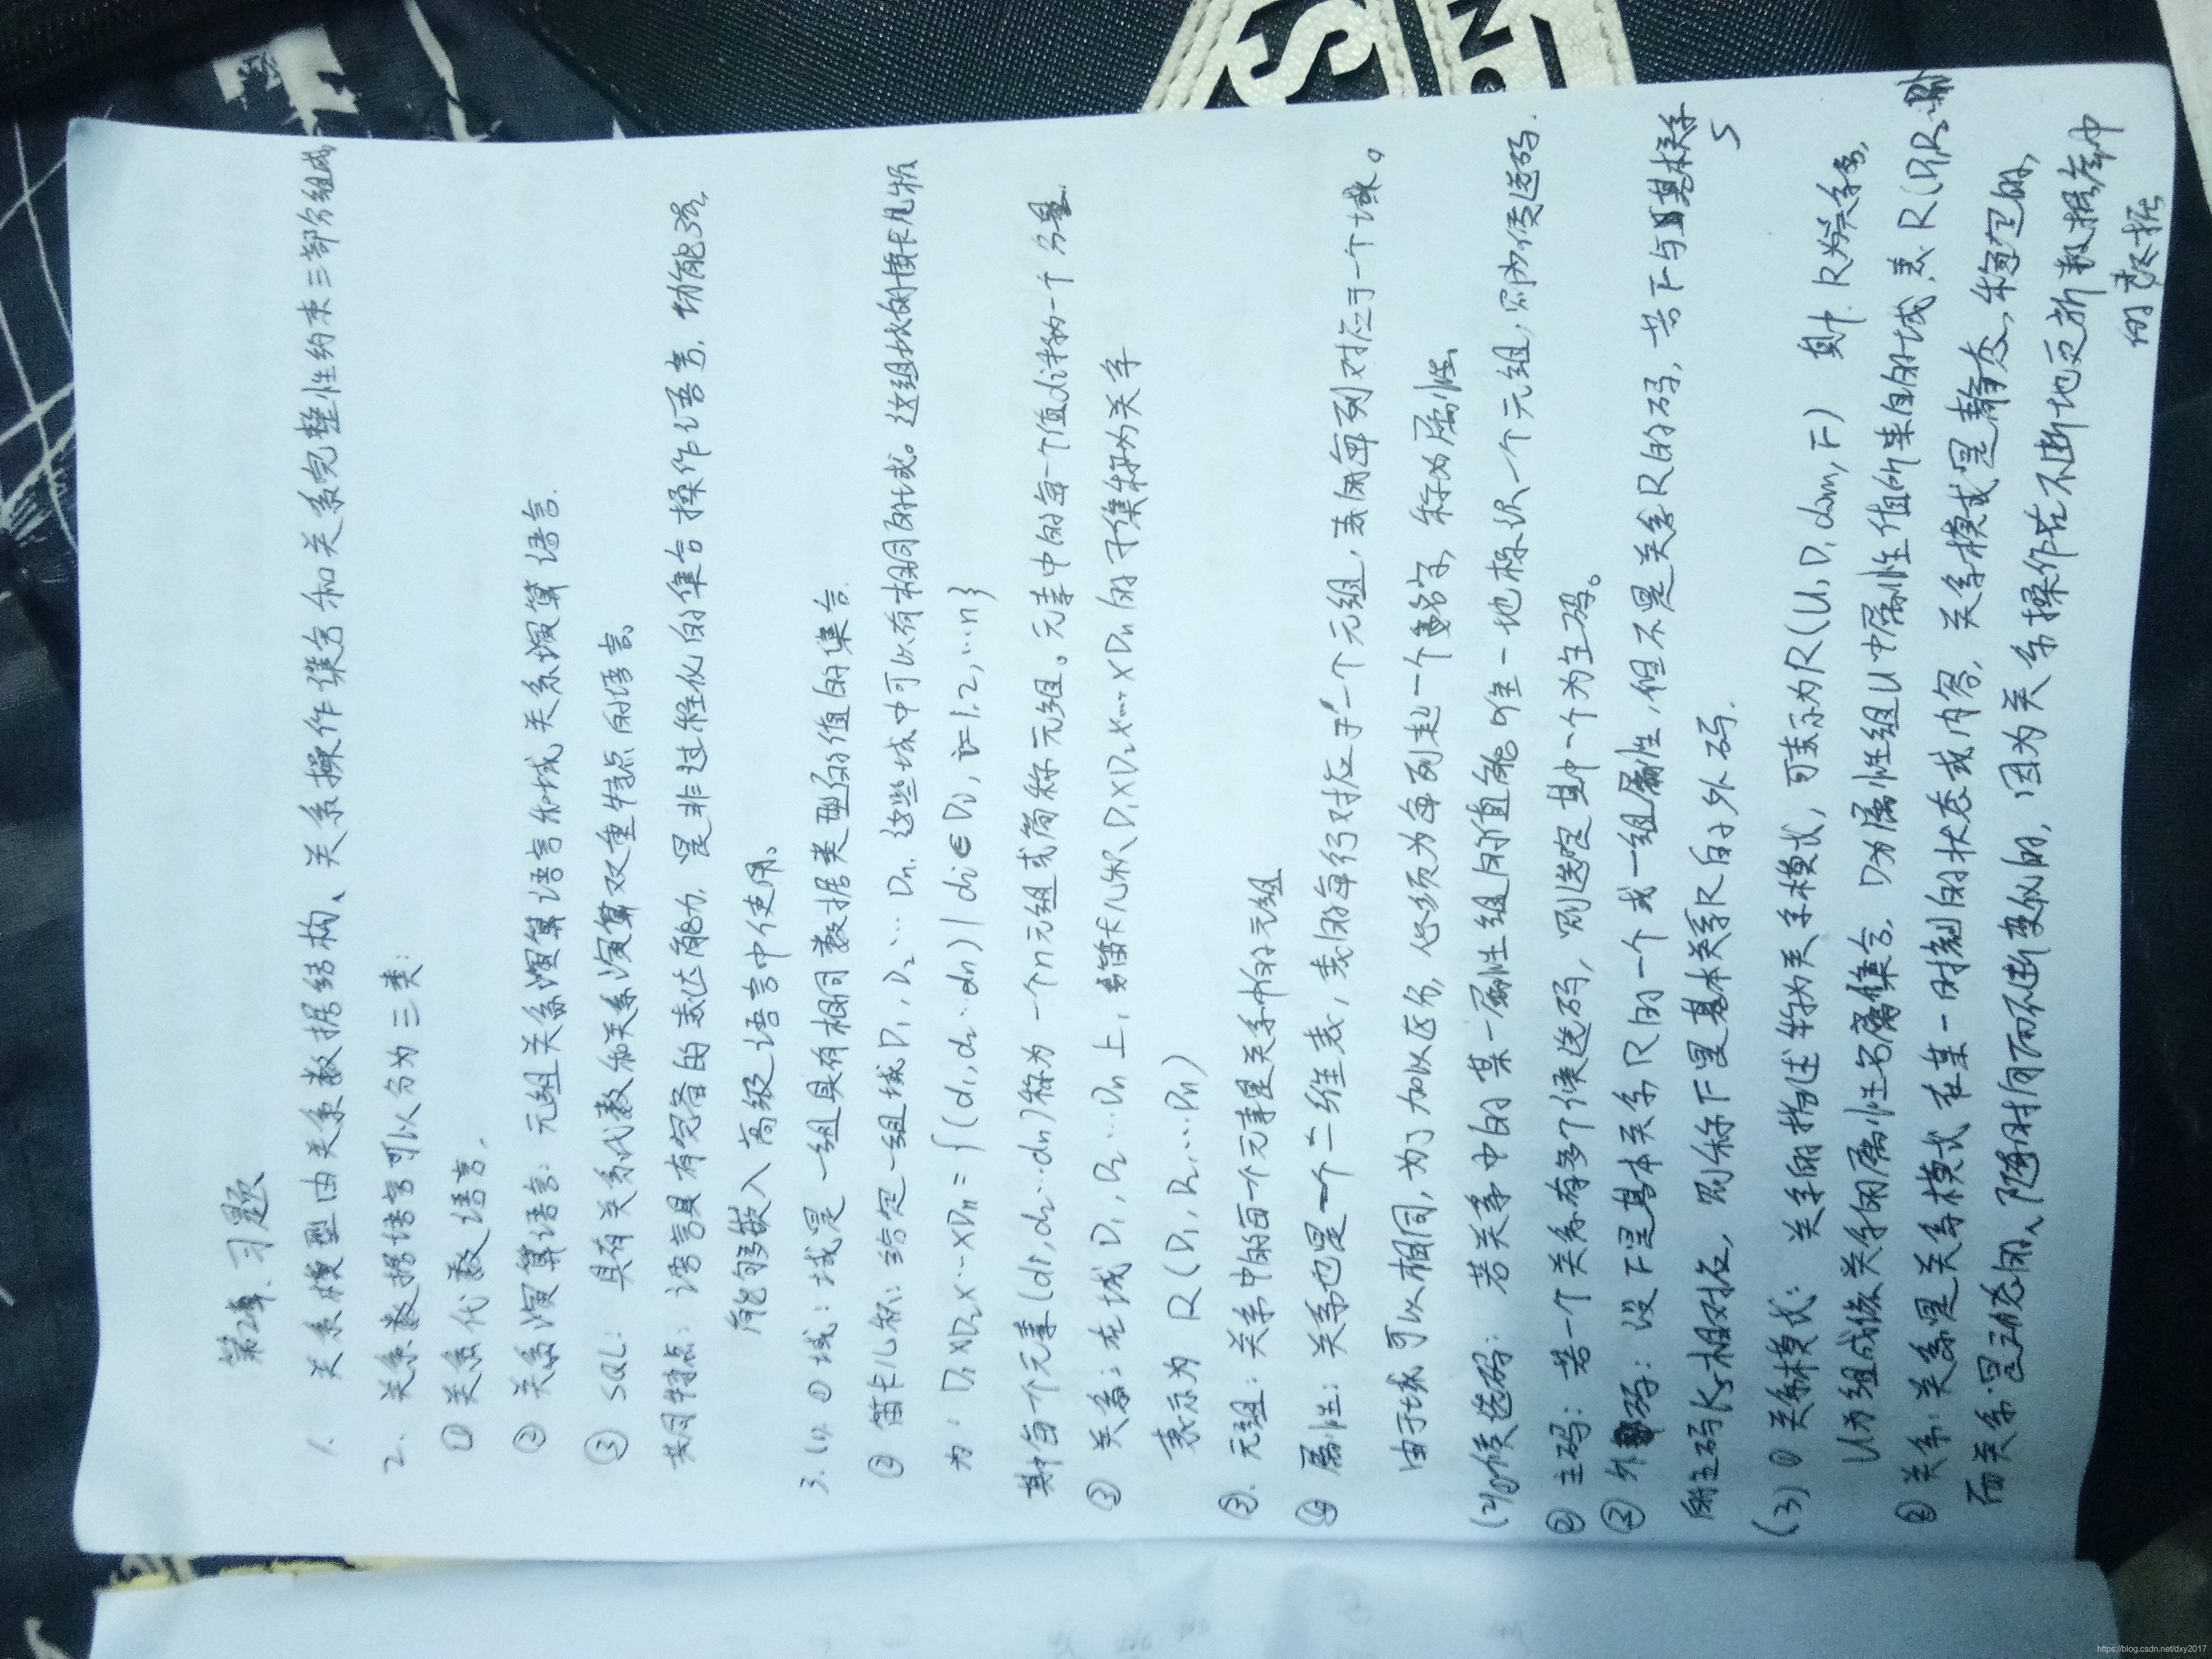 第2章 习题
1. 关系模型由关系数据结构、关系操作集合和关系完整性约束三部分组成
2、关系数据语言可以分为三类:
① 关系代数语言.
② 关系演算语言: 元组关系演算语言和域关系演算语言.
③ SQL: 具有关系代数和关系演算双重特点的语言.
共同特点: 语言具有完备的表达能力, 是非过程化的集合操作语言, 功能强,
能够嵌入高级语言中使用.
3. (1). ① 域: 域是一组具有相同数据类型的值的集合.
② 笛卡儿积: 给定一组域D1, D2 … Dn, 这些域中可以有相同的域。这组域的笛卡儿积
为: D1×D2×…×Dn = {(d1, d2 … dn) | di∈Di, i=1.2, …n}
其中每个元素(d1, d2 … dn)称为一个n元组或简称元组。元素中的每一个值di称为一个分量.
③ 关系: 在域D1, D2 … Dn上, 笛卡儿积D1×D2×…×Dn的子集称为关系
表示为 R(D1, D2, … Dn)
③. 元组: 关系中的每个元素是关系中的元组
④ 属性: 关系也是一个二维表, 表的每行对应于一个元组, 表的每列对应于一个域。
由于域可以相同, 为了加以区分, 必须为每列起一个名字, 称为属性.
(2) ① 候选码: 若关系中的某一属性组的值能唯一地标识一个元组, 则为候选码.
② 主码: 若一个关系有多个候选码, 则选定其中一个为主码。
③ 外码: 设F是基本关系R的一个或一组属性, 但不是关系R的码, 若F与基本关系
S
的主码Ks相对应, 则称F是基本关系R的外码.
(3) ① 关系模式: 关系的描述称为关系模式, 可表示为R(U, D, dom, F) 其中 R为关系名,
U为组成该关系的属性名集合, D为属性组U中属性值所来自的域,
② 关系: 关系是关系模式在某一时刻的状态或内容, 关系模式是静态、稳定的,
而关系是动态的、随时间而不断变化的, 因为关系操作在不断地更新数据库中
的数据
https://blog.csdn.net/dxy2017